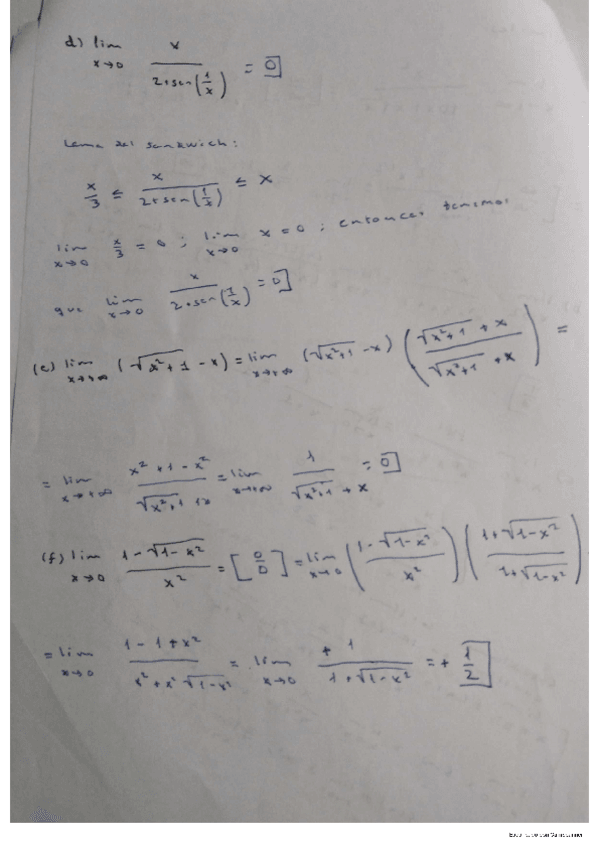 d) lim x→0 x / (2+sen(1/x)) = 0
Lema del sandwich:
x/3 ≤ x / (2+sen(1/x)) ≤ x
lim x→0 x/3 = 0 ; lim x→0 x = 0 ; entonces tenemos
que lim x→0 x / (2+sen(1/x)) = 0
(e) lim x→+∞ (√(x²+1) - x) = lim x→+∞ (√(x²+1) - x) ((√(x²+1) + x) / (√(x²+1) + x)) =
= lim x→+∞ (x² + 1 - x²) / (√(x²+1) + x) = lim x→+∞ 1 / (√(x²+1) + x) = 0
(f) lim x→0 (1 - √(1-x²)) / x² = [0/0] = lim x→0 ((1 - √(1-x²)) / x²) ((1 + √(1-x²)) / (1 + √(1-x²)))
= lim x→0 (1 - 1 + x²) / (x² + x² √(1-x²)) = lim x→0 +1 / (1 + √(1-x²)) = + 1/2